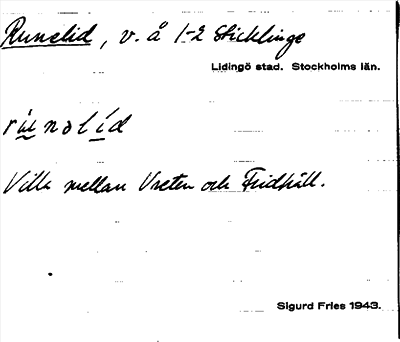 Runelid, v. å 1-2 Sticklinge
Lidingö stad. Stockholms län.
rùnəlíd
Villa mellan Vreten och Fridhäll.
Sigurd Fries 1943.